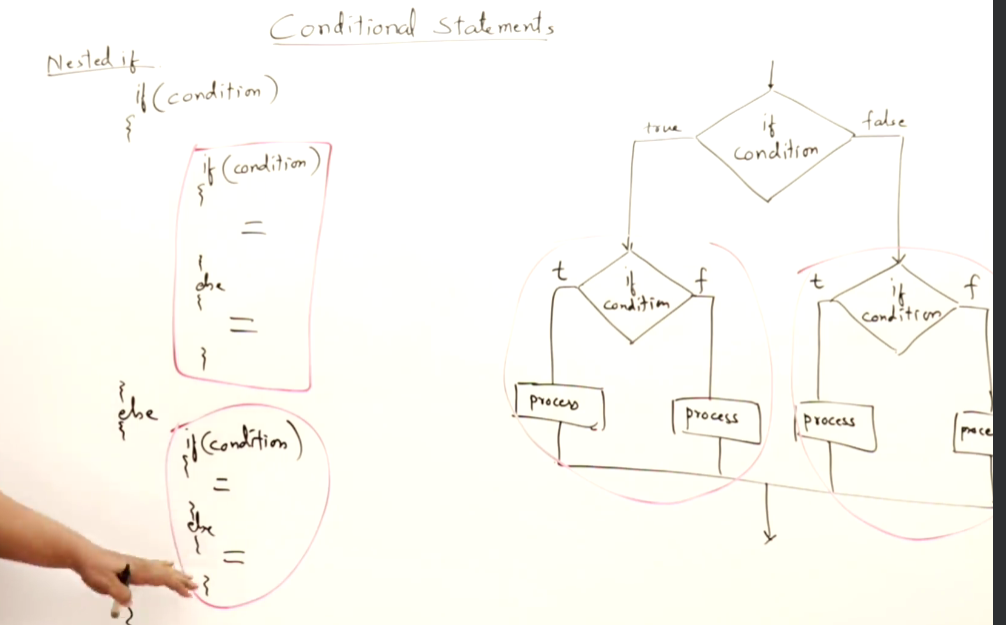 Conditional Statements
Nested if
if(condition)
{
if(condition)
{
=
}
else
{
=
}
}
else
{
if(condition)
{
=
}
else
{
=
}
}
if
condition
true
false
if
condition
t
f
process
process
if
condition
t
f
process